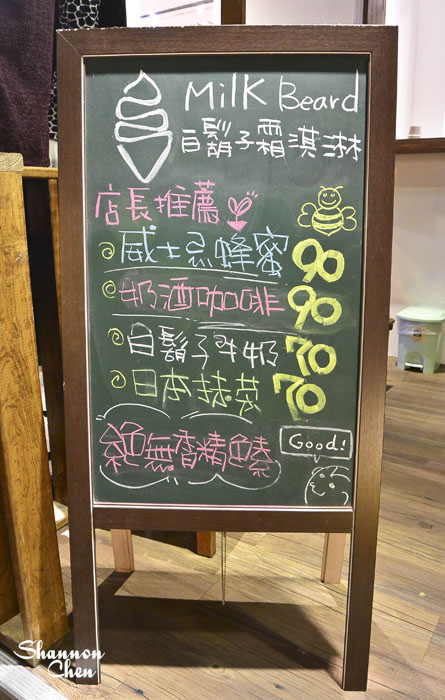 Milk Beard
白鬍子霜淇淋
店長推薦
威士忌蜂蜜 90
奶酒咖啡 90
白鬍子牛奶 70
日本抹茶 70
絕無香精色素
Good!
Shannon
Chen